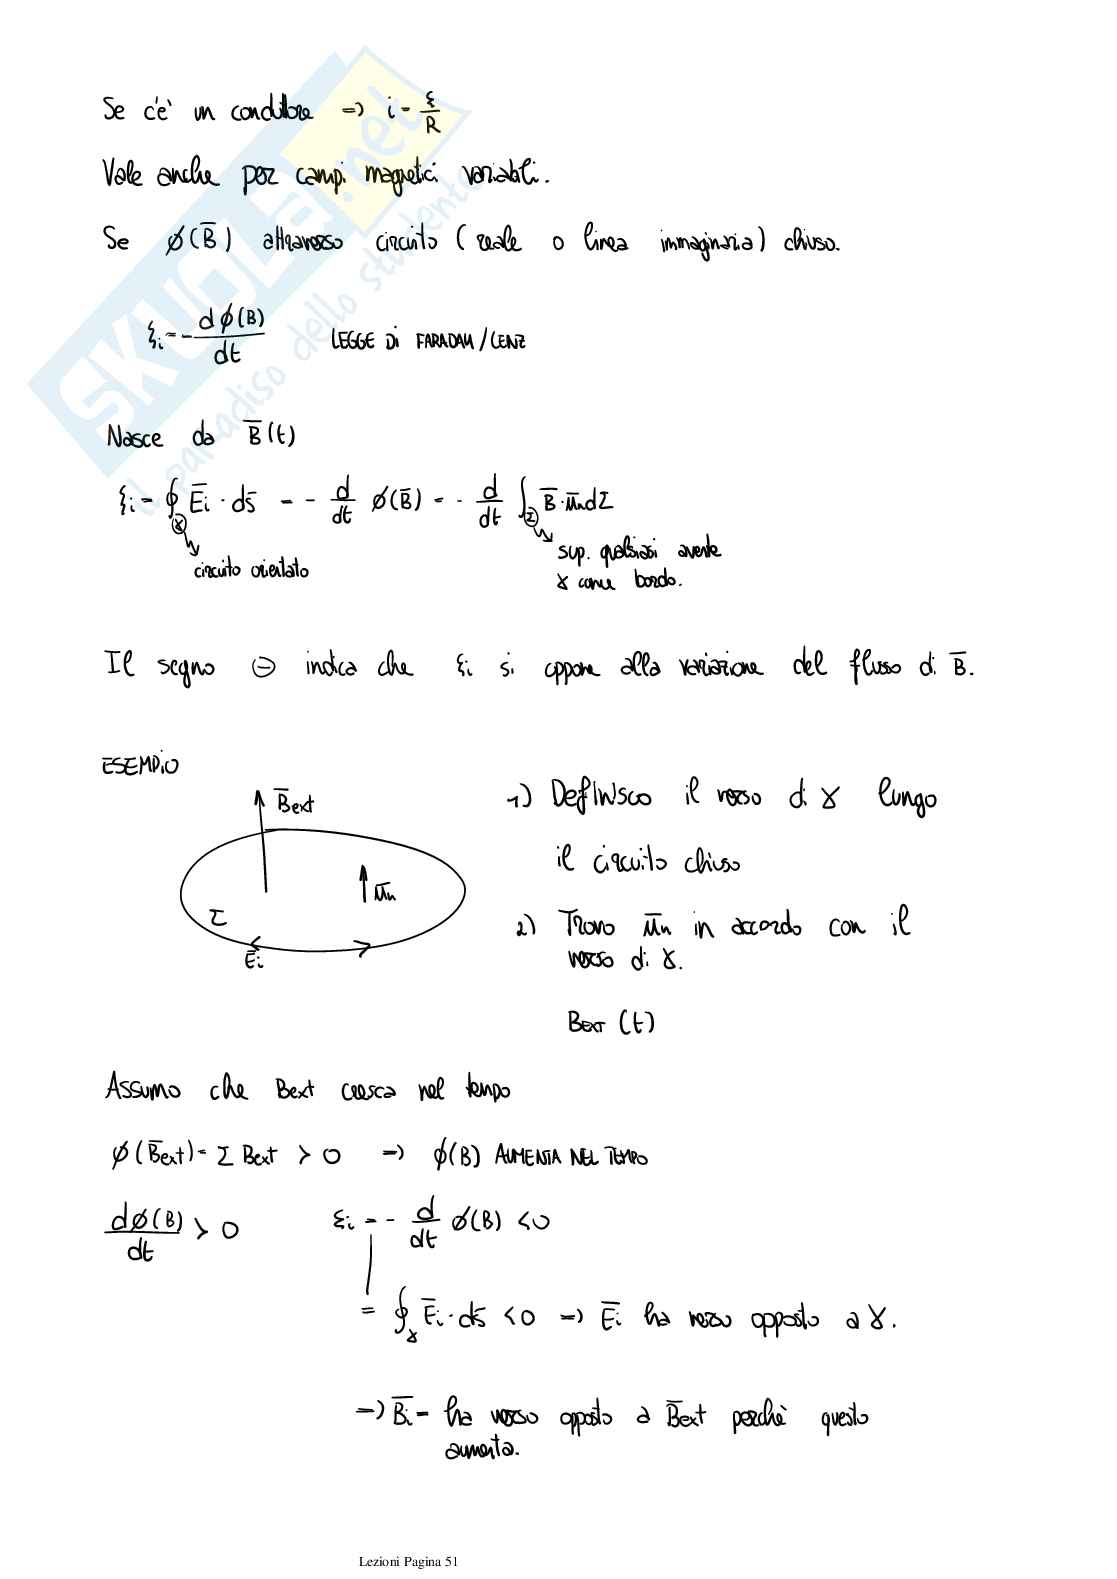 Se c'è un conduttore => i = ξ/R
Vale anche per campi magnetici variabili.
Se ϕ(B̄) attraverso circuito (reale o linea immaginaria) chiuso.
ξi = - dϕ(B)/dt LEGGE DI FARADAY/LENZ
Nasce da B̄(t)
ξi = ∮γ Ēi · ds̄ = - d/dt ϕ(B̄) = - d/dt ∫Σ B̄ · ūn dΣ
circuito orientato
sup. qualsiasi avente
γ come bordo.
Il segno ⊖ indica che ξi si oppone alla variazione del flusso di B̄.
ESEMPIO
B̄ext
ūn
Σ
Ēi
1) Definisco il verso di γ lungo
il circuito chiuso
2) Trovo ūn in accordo con il
verso di γ.
Bext (t)
Assumo che Bext cresca nel tempo
ϕ(B̄ext) = Σ Bext > 0 => ϕ(B) AUMENTA NEL TEMPO
dϕ(B)/dt > 0 ξi = - d/dt ϕ(B) < 0
= ∮γ Ēi · ds̄ < 0 => Ēi ha verso opposto a γ.
=> B̄i = ha verso opposto a B̄ext perchè questo
aumenta.
Lezioni Pagina 51
SKUOLA.net
il paradiso dello studente